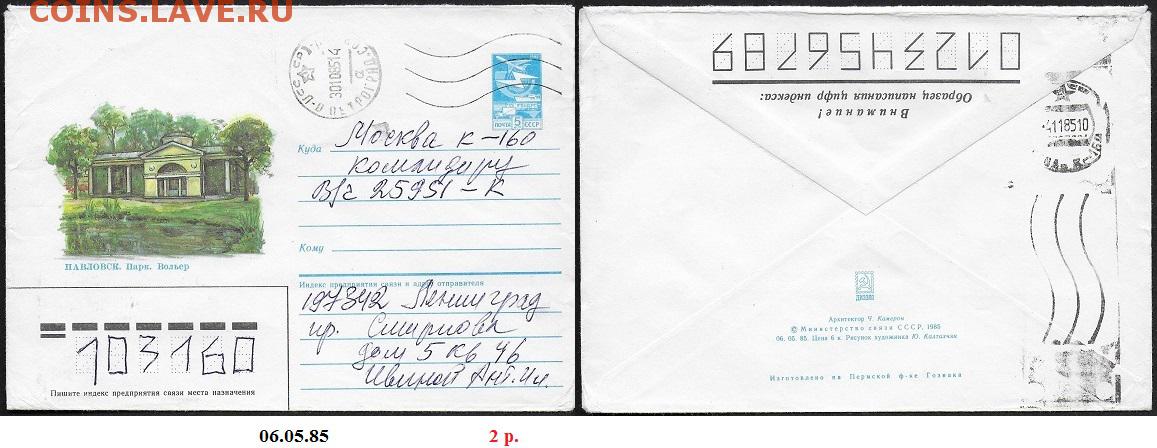 COINS.LAVE.RU
СССР
30108514
ЛЕН-Д ПЕТРОГРАД
ПОЧТА 5 СССР
Куда Москва К-160
командиру
В/ч 25951-К
Кому
ПАВЛОВСК. Парк. Вольер
Индекс предприятия связи и адрес отправителя
197342 Ленинград
пр. Смирнова
дом 5 кв 46
Ант. Ил.
103160
Пишите индекс предприятия связи места назначения
0123456789
Образец написания цифр индекса:
Внимание!
-4118510
К-160
Архитектор Ч. Камерон
© Министерство связи СССР, 1985
06. 05. 85. Цена 6 к. Рисунок художника Ю. Калталчян
Изготовлено на Пермской ф-ке Гознака
06.05.85
2 р.